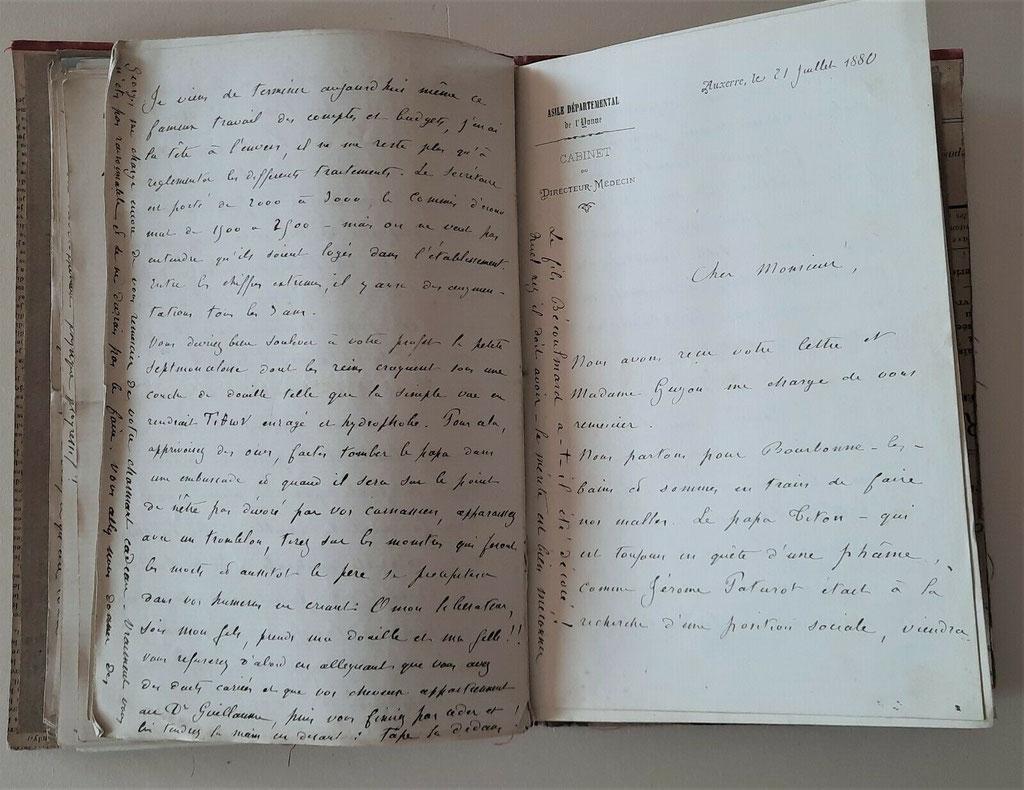 Je viens de terminer aujourd'hui même ce
fameux travail des comptes et budgets, j'en ai
la tête à l'envers, il ne me reste plus qu'à
reglementer les differents traitements. Le secretaire
est porté de 2000 à 3000, le Commis d'econo
mat de 1500 a 2500 - mais on ne veut pas
entendre qu'ils soient logés dans l'établissement.
Entre les chiffres extremes, il y aura des augmen-
tations tous les 3 ans.
Vous devriez bien soulever à votre profit la petite
Septmoncelose dont les reins craquent sous une
couche de douille telle que la simple vue en
rendrait enragé et hydrophobe. Pour cela,
apprivoisez des ours, faites tomber le papa dans
une embuscade et quand il sera sur le point
de nêtre pas dévoré par vos carnassiers, apparaissez
avec un tromblon, tirez sur les monstres qui feront
les morts et aussitot le père se precipitera
dans vos humerus en criant: O mon liberateur,
sois mon fils, prends ma douille et ma fille!!
vous refuserez d'abord en alleguant que vous avez
des dents cariées et que vos cheveux appartiennent
au Dr Guillaume, puis vous finirez par ceder et
lui tendrez la main en disant: Tape la dedans!
Georges me charge encore de vous remercier de votre charmant cadeau - vraiment vous
n'êtes pas raisonnable et de ne devrais pas le faire. Vous allez nous donner des
Auxerre, le 21 Juillet 1880
ASILE DÉPARTEMENTAL
de l'Yonne
CABINET
DU
DIRECTEUR-MÉDECIN
Cher Monsieur,
Nous avons reçu votre lettre et
Madame Guyon me charge de vous
remercier.
Nous partons pour Bourbonne-les-
bains et sommes en train de faire
nos malles. Le papa Titon - qui
est toujours en quête d'une phâme,
comme Jérome Paturot était à la
recherche d'une position sociale, viendra
Le fils Bécoulmard a-t-il été décoré!
quel nez il doit avoir - le mérite est bien méconnu